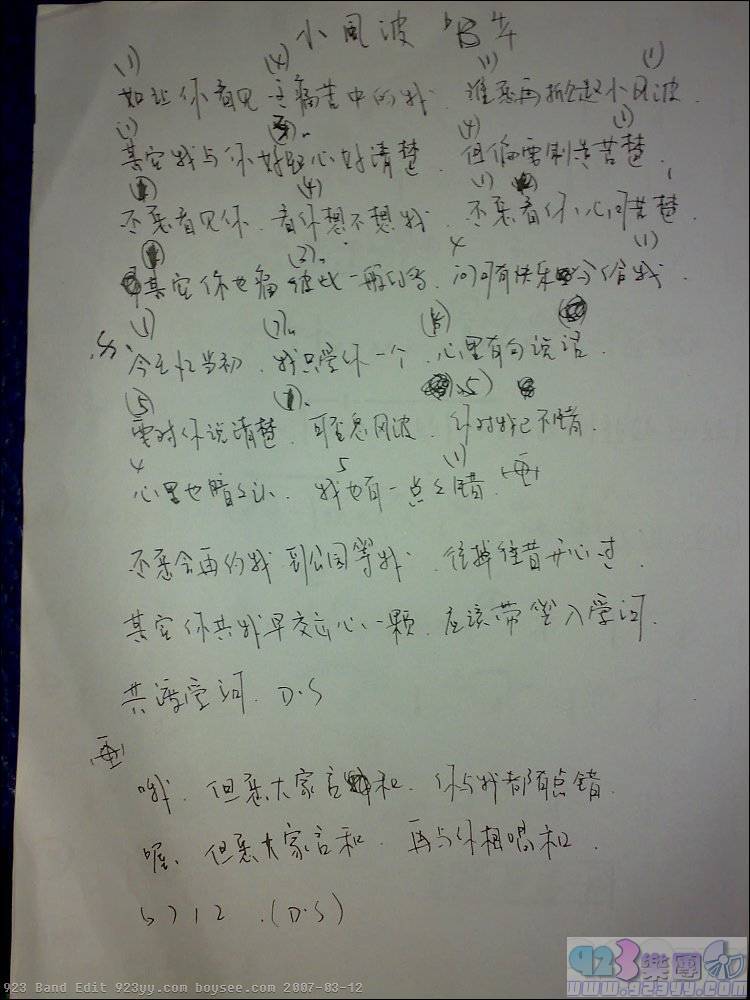 小風波 bB 4
(1) (4) (1) (1)
如让你看见 在痛苦中的我. 谁愿再掀起小风波.
(1) (4) (1)
其实我与你好明心好清楚. 但偏要制造苦楚.
(4) (1)
不愿看见你. 看你想不想我. 不愿看你心河苦楚.
(2)m 4 (1)
其实你也痛 彼此一般 问可有快乐分给我.
(5)
今天忆当初. 我只爱你一个. 心里有句说话.
(5) 5)
要对你说清楚. 可否息风波. 你对我已不错.
4 5 (1)
心里也暗暗认. 我也有一点点错.
不愿会再约我 到公园等我. 往掉往昔开心过.
其实你共我早交出心一颗. 应该带坠入爱河.
共渡爱河. D.S
哦. 但愿大家言和. 你与我都有点错.
喔. 但愿大家言和. 再与你相唱和.
6 7 1 2 .(D.S)
923樂團
www.923yy.com
923 Band Edit 923yy.com boysee.com 2007-03-12